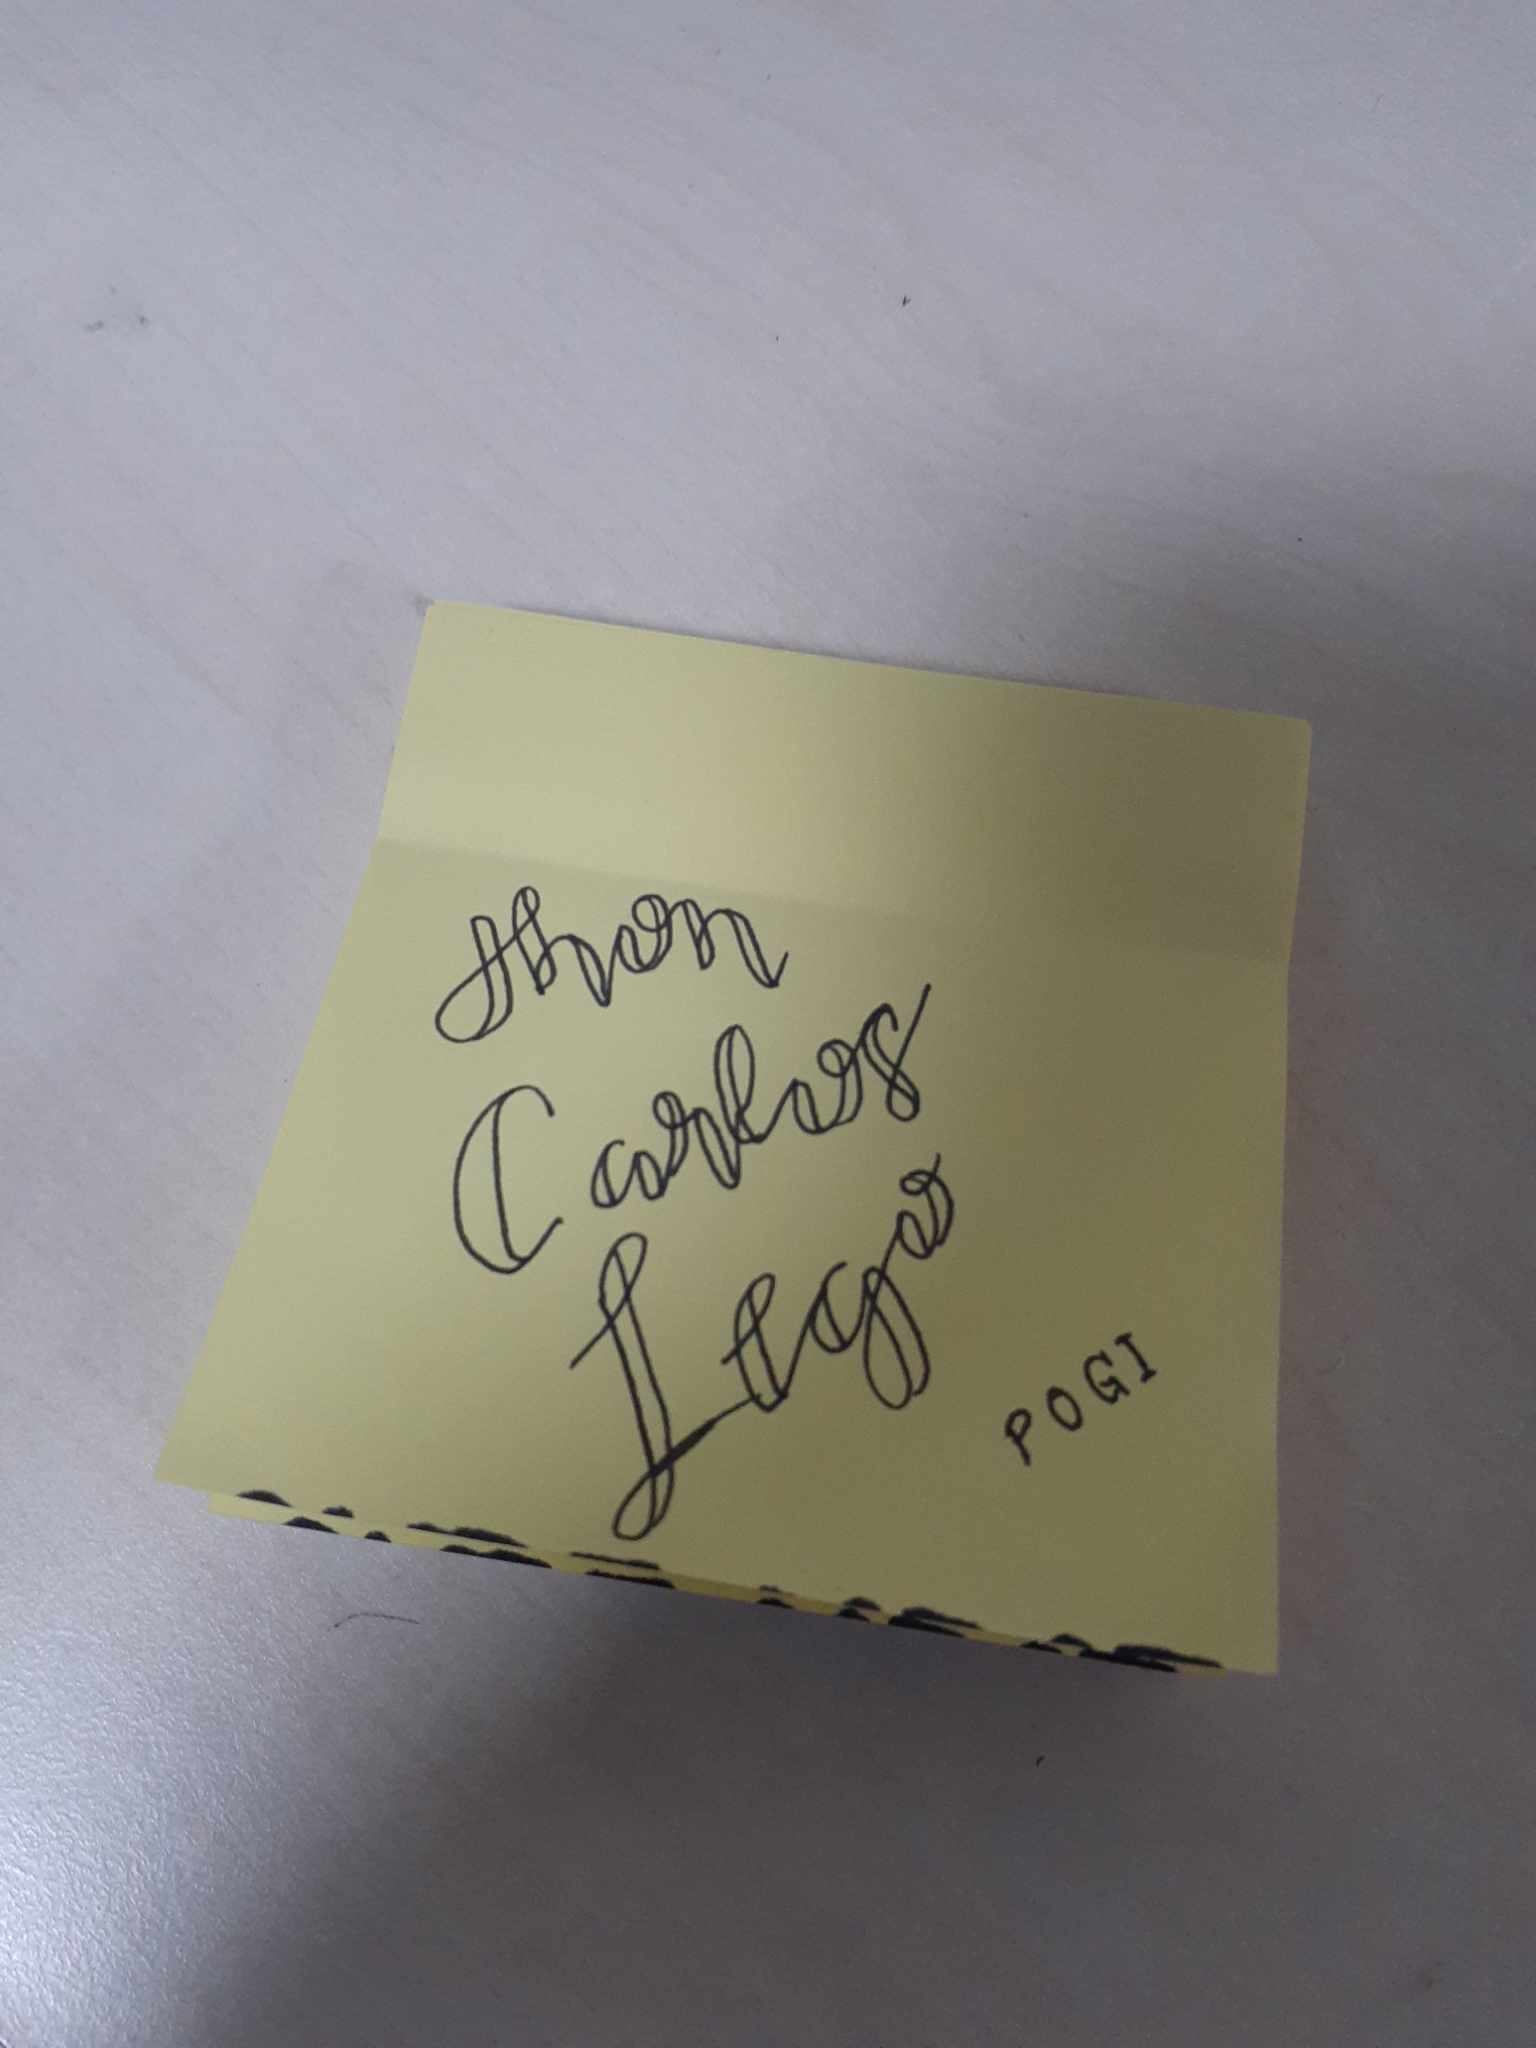 Jhon
Carlos
Lego
POGI